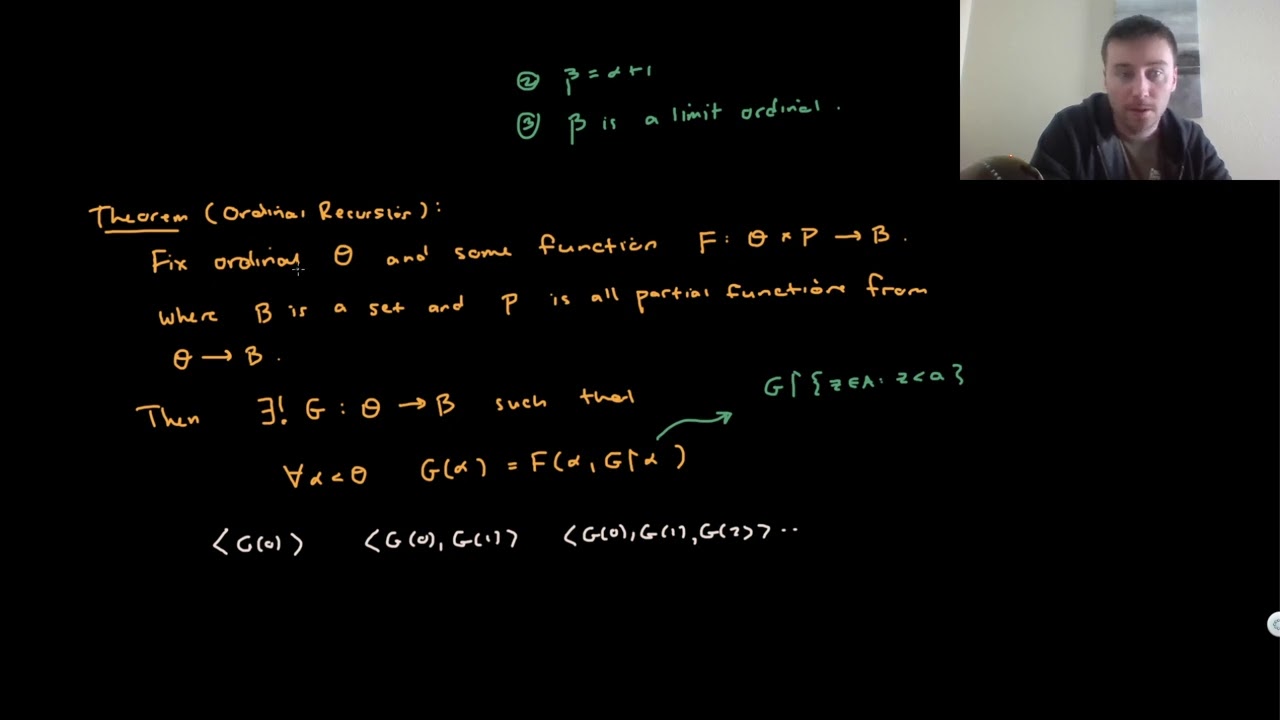 ② β = α + 1
③ β is a limit ordinal .
Theorem (Ordinal Recursion):
Fix ordinal θ and some function F : θ × P → B .
where B is a set and P is all partial functions from
θ → B .
G↾{z∈A: z<a}
Then ∃! G : θ → B such that
∀α<θ G(α) = F(α, G↾α )
⟨G(0)⟩ ⟨G(0), G(1)⟩ ⟨G(0), G(1), G(2)⟩ ..